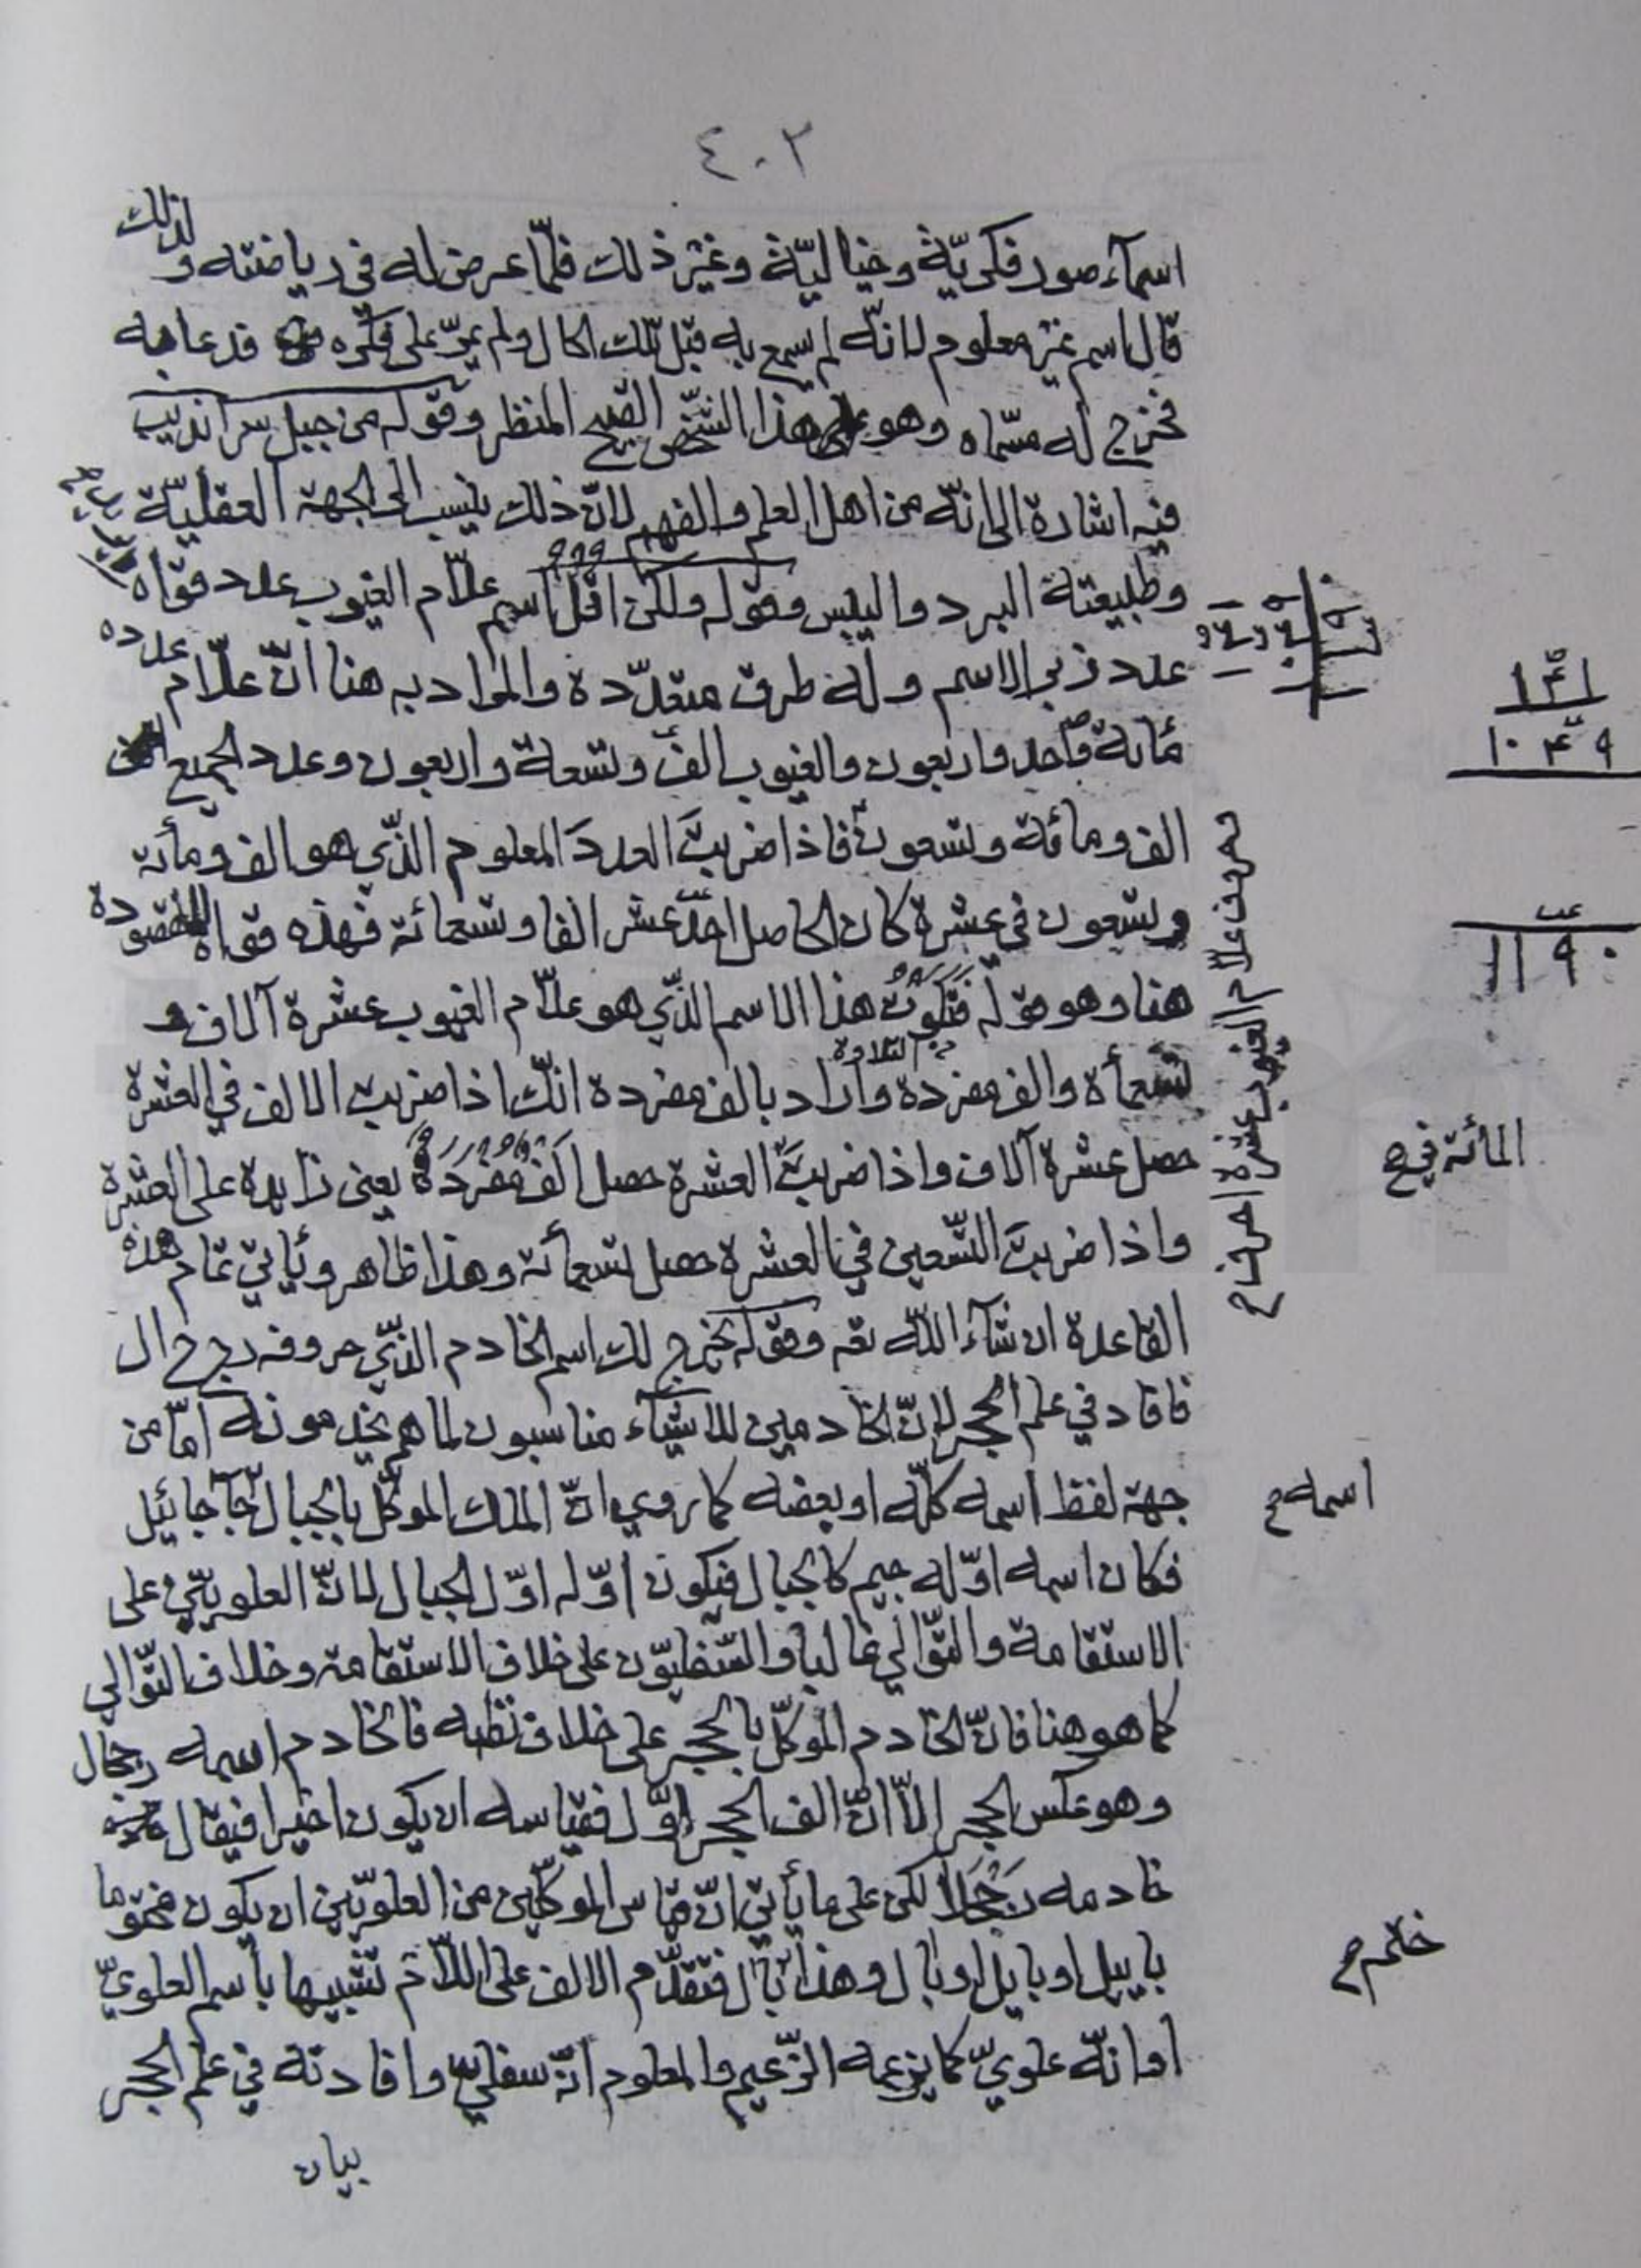 ٤٠٢
اسمآء صور فكريّة وخياليّة وغير ذلك فلمّا عرض له في رياضته و لذلك
قال اسم غير معلوم لانّه لم يسمع به قبل تلك الحال ولم يمرّ على فكره قدعا به
فخرج له مسمّاه وهو هذا الشخص القبيح المنظر وقوله من جبل سرانديب
فيه اشارة الى انّه من اهل العلم والفهم لانّ ذلك ينسب الى الجهة العقليّة
وطبيعته البرد واليبس وقوله ولكن اقل اسم علّام الغيوب عدد قواه
عدد زبر الاسم وله طرق متعدّدة والمراد به هنا انّ علّام عدده
مائة واحد واربعون والغيوب الف وتسعة واربعون وعدد الجميع
الف ومائة وتسعون فاذا ضربتَ العددَ المعلوم الّذي هو الف ومأئة
وتسعون في عشرة كان الحاصل احد عشر الفا وتسعمائة فهذه قواه المقصودة
هنا وهو قوله فتكون هذا الاسم الذّي هو علّام الغيوب عشرة آلاف و
تسعمأة والف مفردة وأراد بالف مفردة انّك اذا ضربت الالف في العشرة
في التلاوة
حصل عشرة آلاف واذا ضربتَ العشرة حصل الف مفردة يعني زايدة على العشرة
المائة في ح
واذا ضربتَ التّسعين في العشرة حصل تسعمأئة وهذا ظاهر ويأتي تمام هذه
القاعدة ان شآء اللّه تعه وقوله تخرج لك اسم الخادم الذّي حروفه ر ج ح ا ل
فافاد في علم الحجر لانّ الخادمين للاشيآء مناسبون لما هم يخدمونه امّا من
جهة لفظ اسمه كلّه او بعضه كما روي انّ الملك الموكّل بالجبال جآجائيل
اسمه ح
فكان اسمه اوّله جيم كالجبال فيكون اوّله اوّل الجبال لانّ العلويّين على
الاستقامة والتّوالي غالبا والسّفليّون على خلاف الاستقامة وخلاف التّوالي
كما هو هنا فانّ الخادم الموكّل بالحجر على خلاف نظمه فالخادم اسمه رجحال
وهو عكس الحجر الّا انّ الف الحجر اوّل فقياسه ان يكون اخيرا فيقال
خادمه رجحلا لكن على ما يأتي انّ قياس الموكّلين من العلويّين ان يكون مختوما
باييل او بايل او بال وهذا بال فتقدّم الالف على اللّام تشبيها باسم العلويّ
ختم ح
او انّه علويّ كما يزعمه الزّعيم والمعلوم انّه سفليّ وافادته في علم الحجر
بيان
١٤١
١٠٤٩
١١٩٠